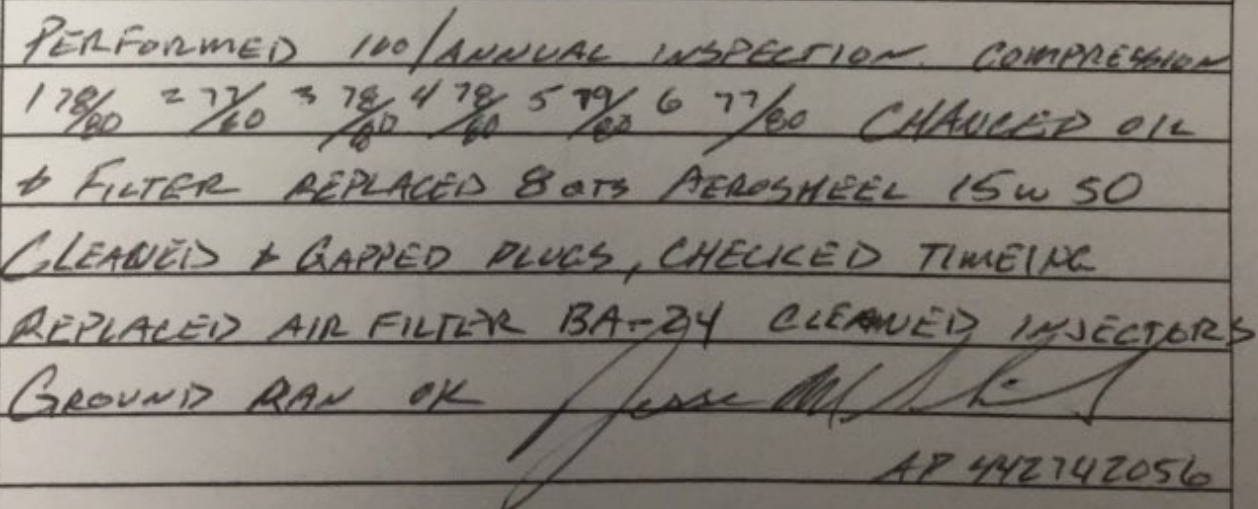 PERFORMED 100/ANNUAL INSPECTION. COMPRESSION
1 78/80 2 77/80 3 78/80 4 78/80 5 79/80 6 77/80 CHANGED OIL
& FILTER REPLACED 8 QTS AEROSHEEL 15W 50
CLEANED & GAPPED PLUGS, CHECKED TIMEING
REPLACED AIR FILTER BA-24 CLEANED INJECTORS
GROUND RAN OK Jesse
AP 442742056